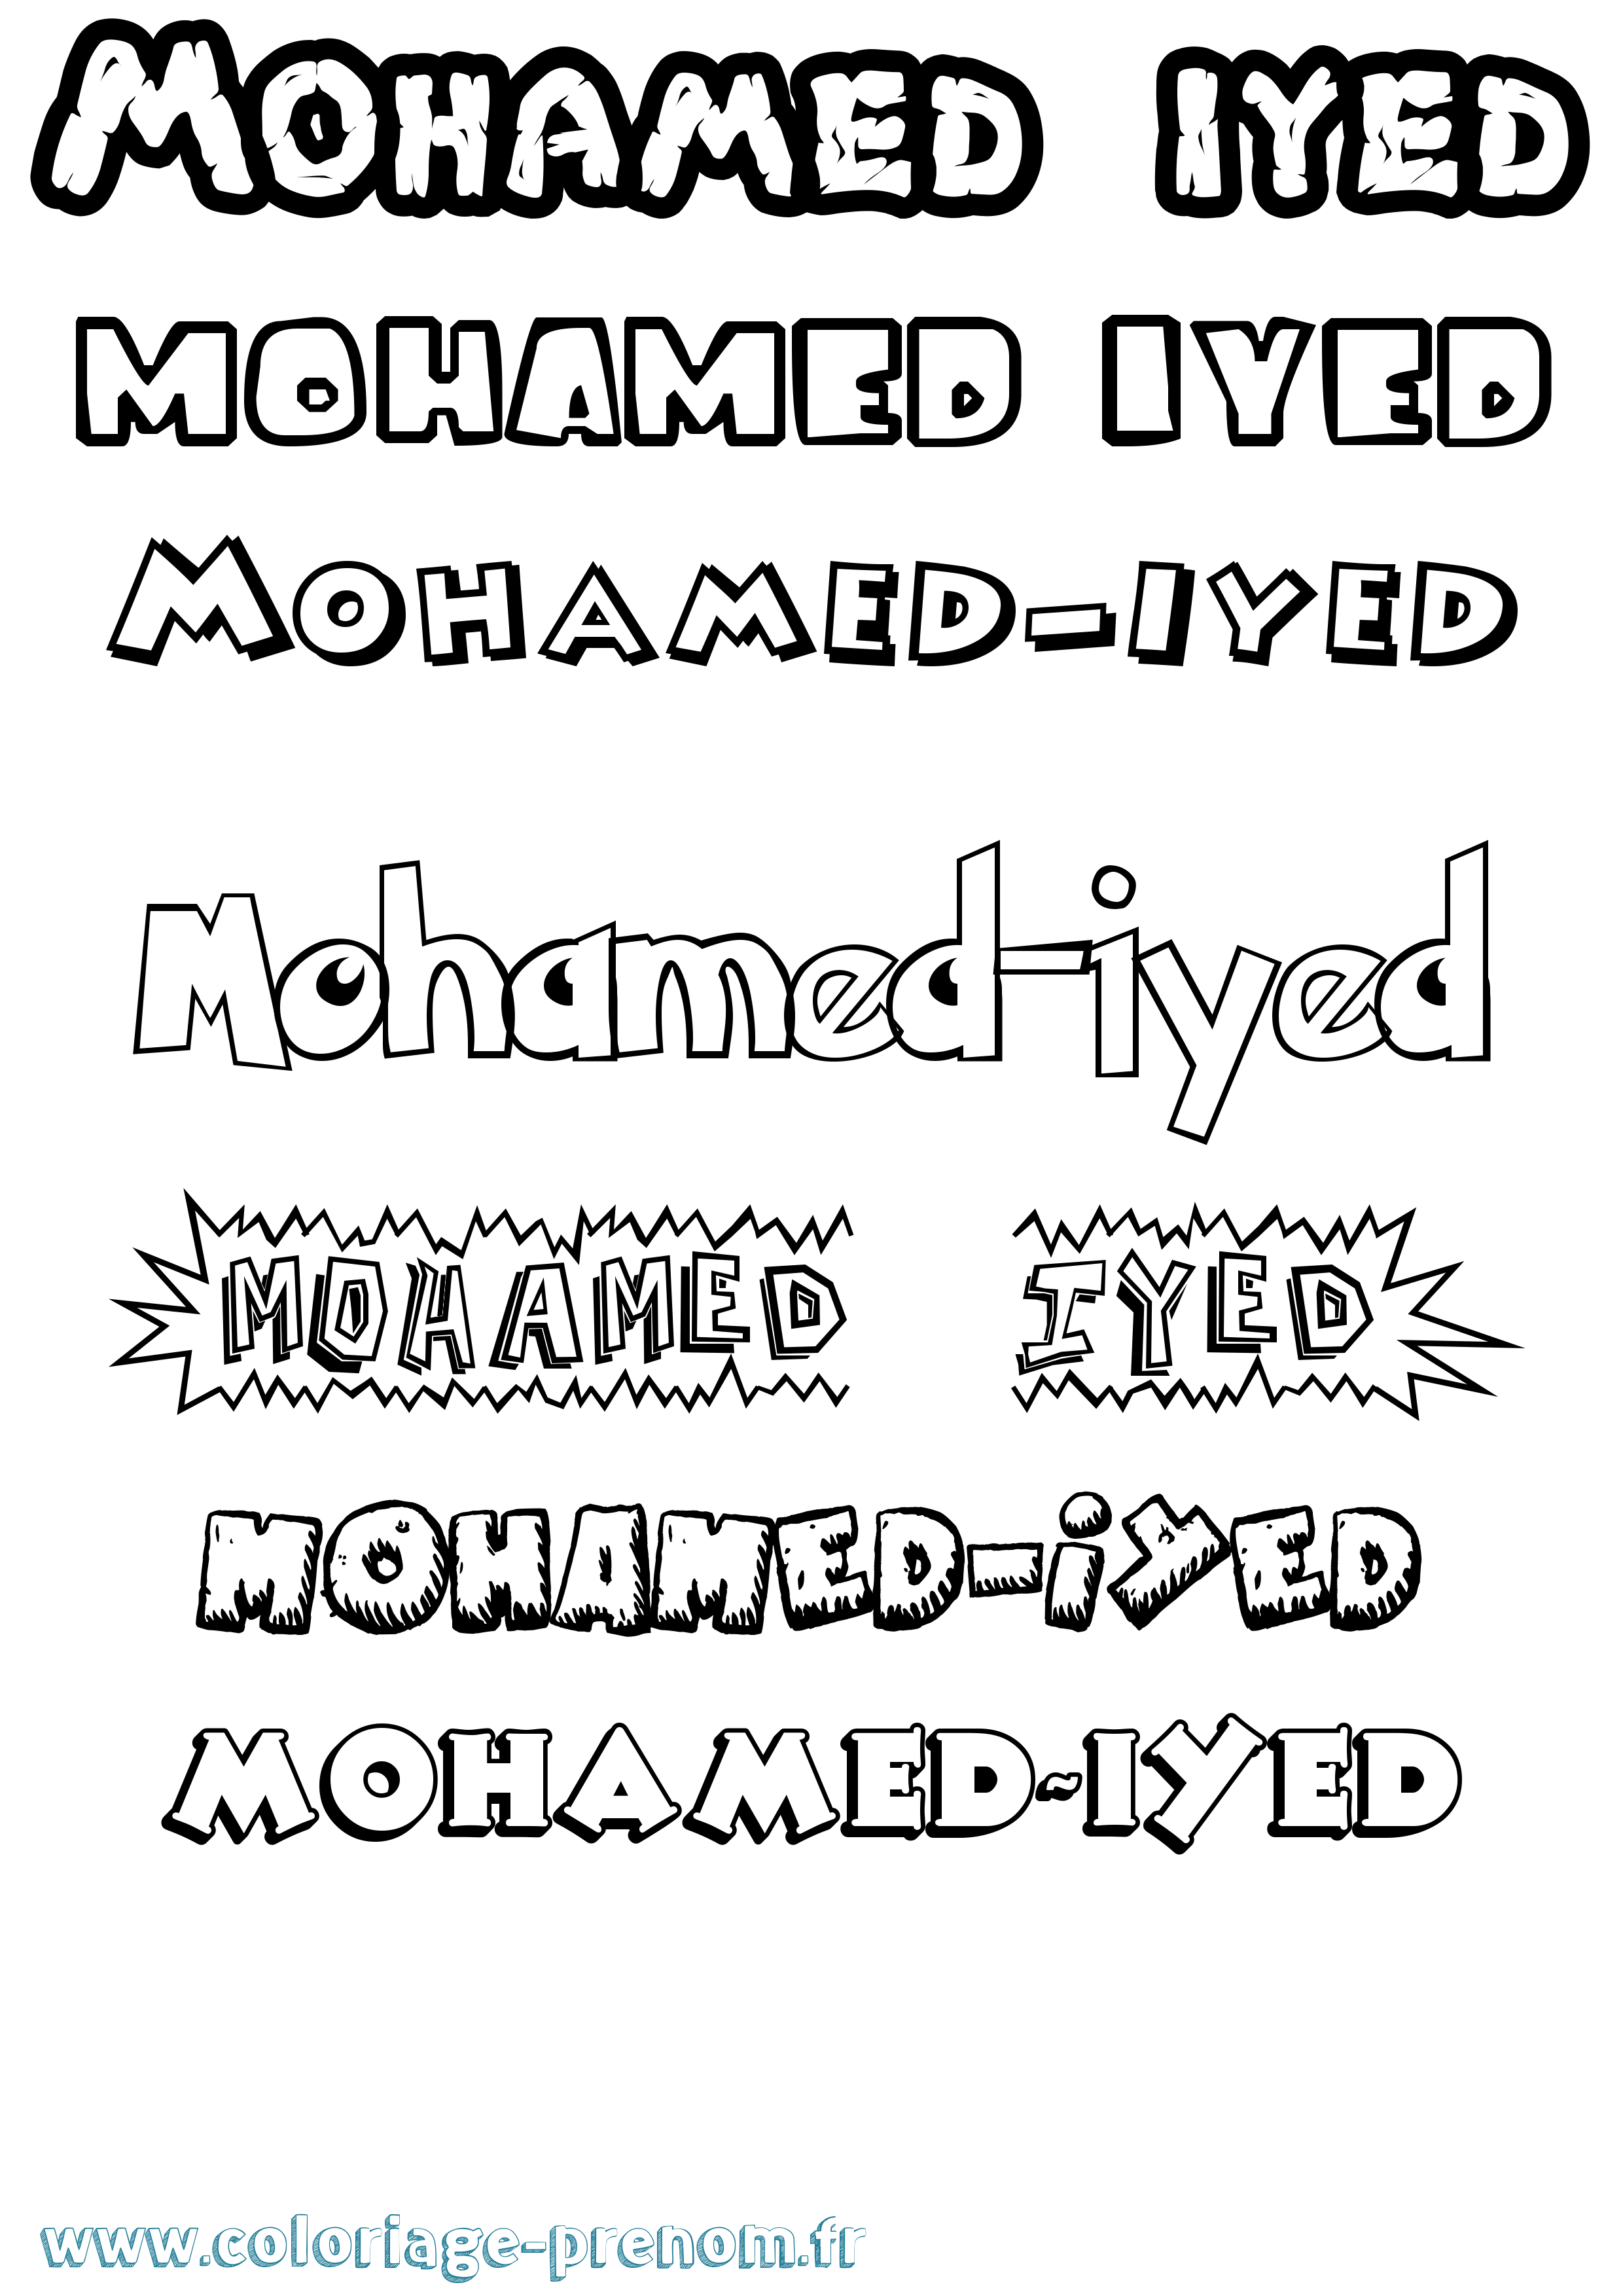 MOHAMED IYED
MOHAMED IYED
MOHAMED-IYED
Mohamed-iyed
MOHAMED IYED
MOHAMED-iYED
MOHAMED~IYED
www.coloriage-prenom.fr